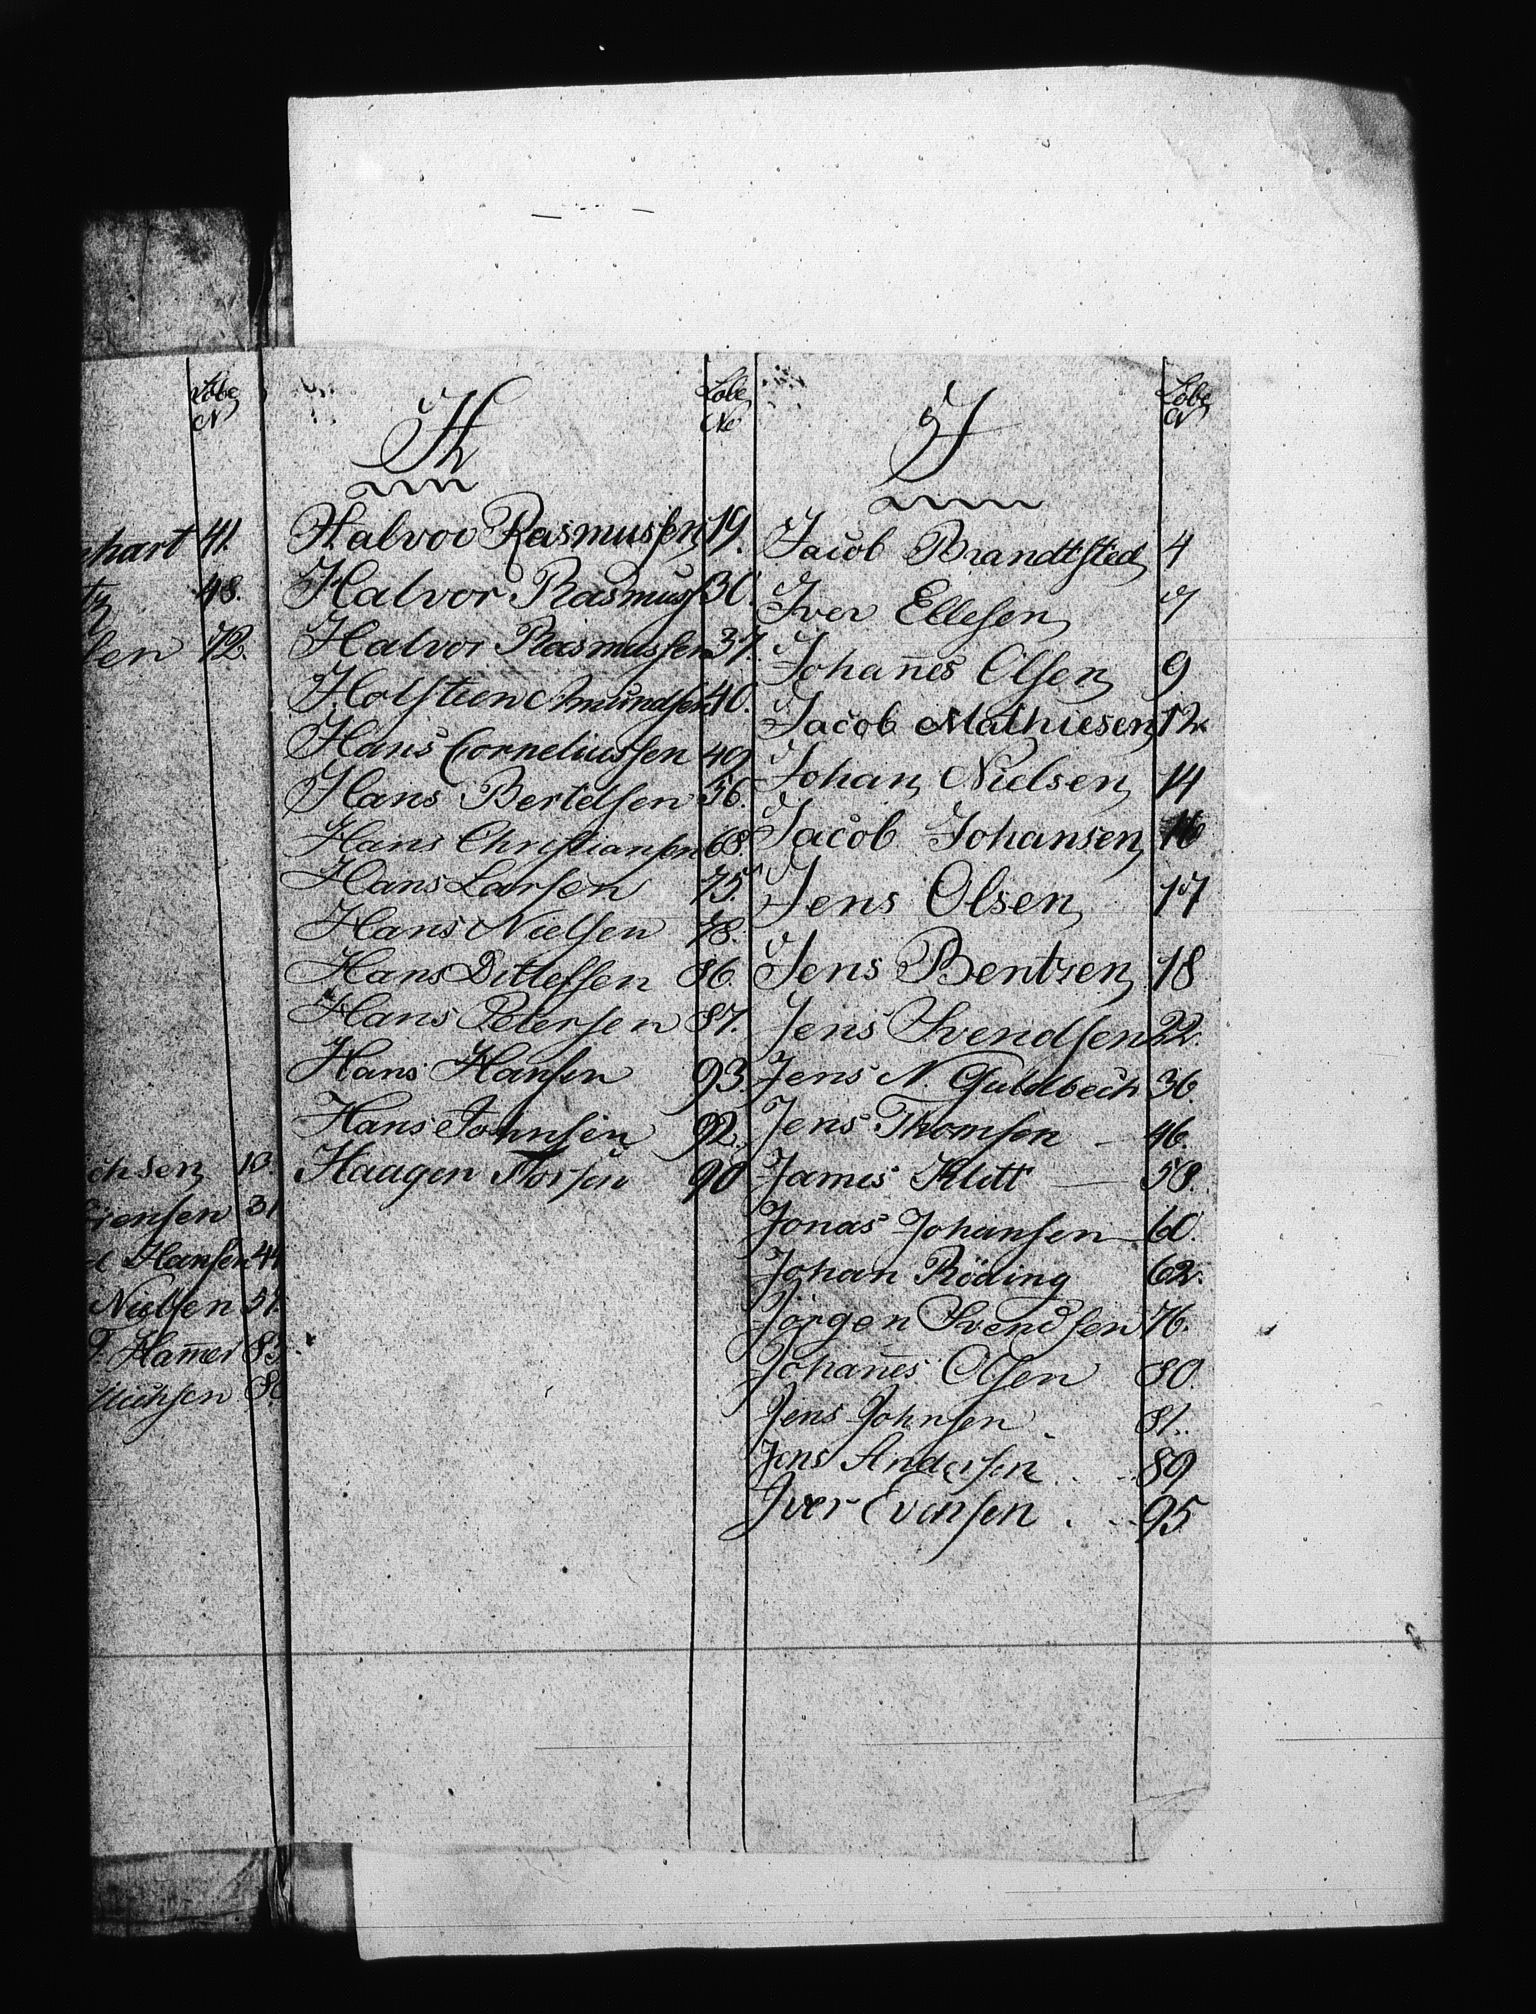 Löbe
N
41.
48.
72.
chsen 13
31
Hansen 44
Nielsen 57.
Ham̅er 83.
H
Löbe
No
Halvor Rasmussen 19.
Halvor Rasmuss 30.
Halvor Rasmussen 37.
Holsteen Amundsen 40.
Hans Corneliussen 49
Hans Bertelsen 56.
Hans Christiansen 68.
Hans Larsen 75.
Hans Nielsen 78.
Hans Ditlefsen 86.
Hans Petersen 87.
Hans Hansen 93.
Hans Johnsen 92.
Haagen Thorsen 90
J
Löbe
N
Jacob Brandtsted 4
Iver Ellefsen 7
Johan̅es Olsen 9
Jacob Mathiesen 12
Johan Nielsen 14
Jacob Johansen 16
Jens Olsen 17
Jens Bentsen 18
Jens Svendsen 22.
Jens N. Guldbech 36.
Jens Thomsen – 46.
James Klitt — 58.
Jonas Johansen – 60.
Johan Röding 62.
Jörgen Svendsen 76.
Johan̅es Olsen 80.
Jens Johnsen 81.
Jens Andersen 89
Iver Evensen 95